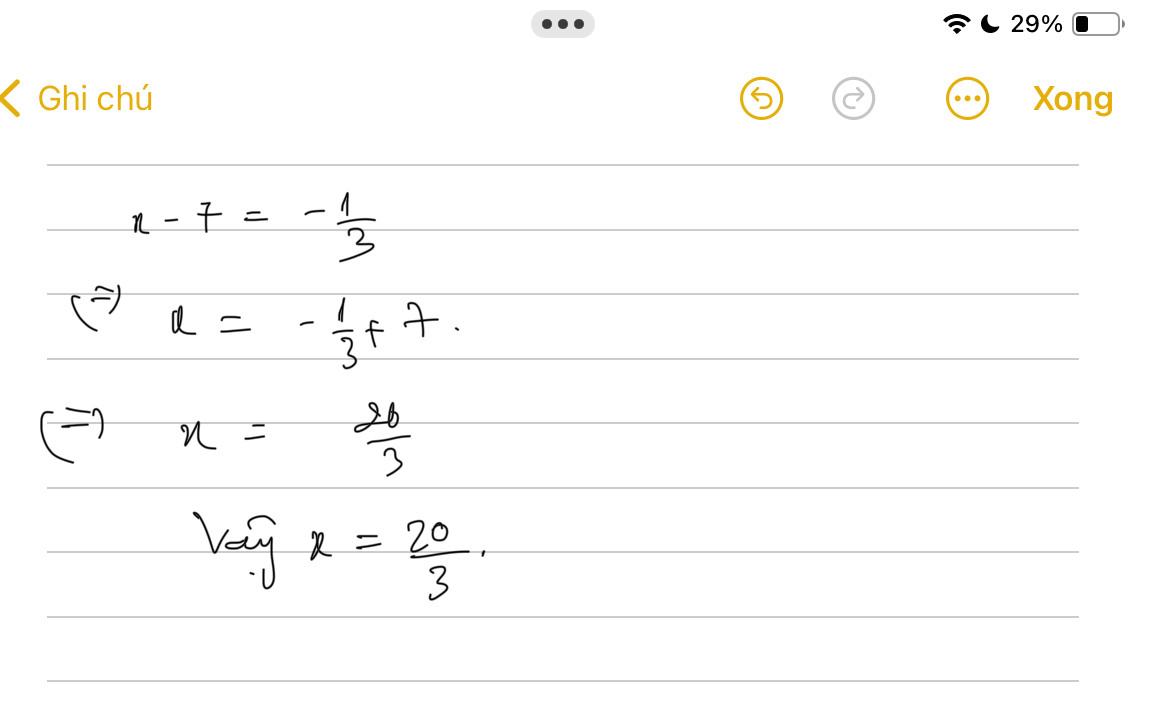 29%
Ghi chú Xong
x - 7 = - 1/3
(=) x = - 1/3 + 7.
(=) x = 20/3
Vậy x = 20/3.